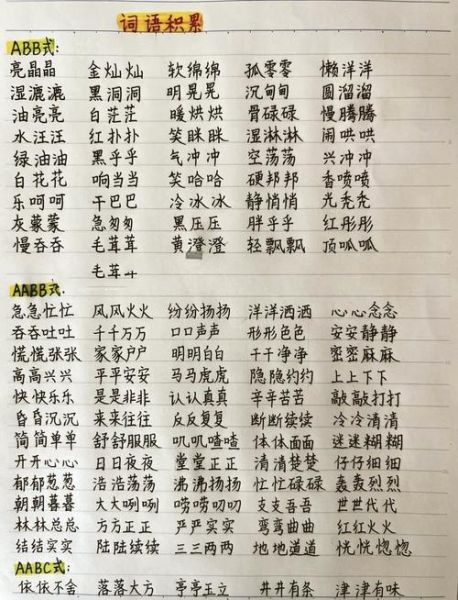 词语积累
ABB式:
亮晶晶 金灿灿 软绵绵 孤零零 懒洋洋
湿漉漉 黑洞洞 明晃晃 沉甸甸 圆溜溜
油亮亮 白茫茫 暖烘烘 骨碌碌 慢腾腾
水汪汪 红扑扑 笑眯眯 湿淋淋 闹哄哄
绿油油 黑乎乎 气冲冲 空荡荡 兴冲冲
白花花 响当当 笑哈哈 硬邦邦 香喷喷
乐呵呵 干巴巴 冷冰冰 静悄悄 光秃秃
灰蒙蒙 急匆匆 黑压压 胖乎乎 红彤彤
慢吞吞 毛茸茸 黄澄澄 轻飘飘 顶呱呱
毛茸
AABB式.
急急忙忙 风风火火 纷纷扬扬 洋洋洒洒 心心念念
吞吞吐吐 千千万万 口口声声 形形色色 安安静静
慌慌张张 家家户户 明明白白 干干净净 密密麻麻
高高兴兴 平平安安 马马虎虎 隐隐约约 上上下下
快快乐乐 是是非非 认认真真 辛辛苦苦 敲敲打打
昏昏沉沉 来来往往 反反复复 断断续续 冷冷清清
简简单单 舒舒服服 叽叽喳喳 体体面面 迷迷糊糊
开开心心 日日夜夜 堂堂正正 清清楚楚 仔仔细细
郁郁葱葱 浩浩荡荡 沸沸扬扬 忙忙碌碌 轰轰烈烈
朝朝暮暮 大大咧咧 唠唠叨叨 支支吾吾 世世代代
林林总总 方方正正 严严实实 弯弯曲曲 红红火火
结结实实 陆陆续续 三三两两 地地道道 恍恍惚惚
AABC式:
依依不舍 落落大方 亭亭玉立 井井有条 津津有味